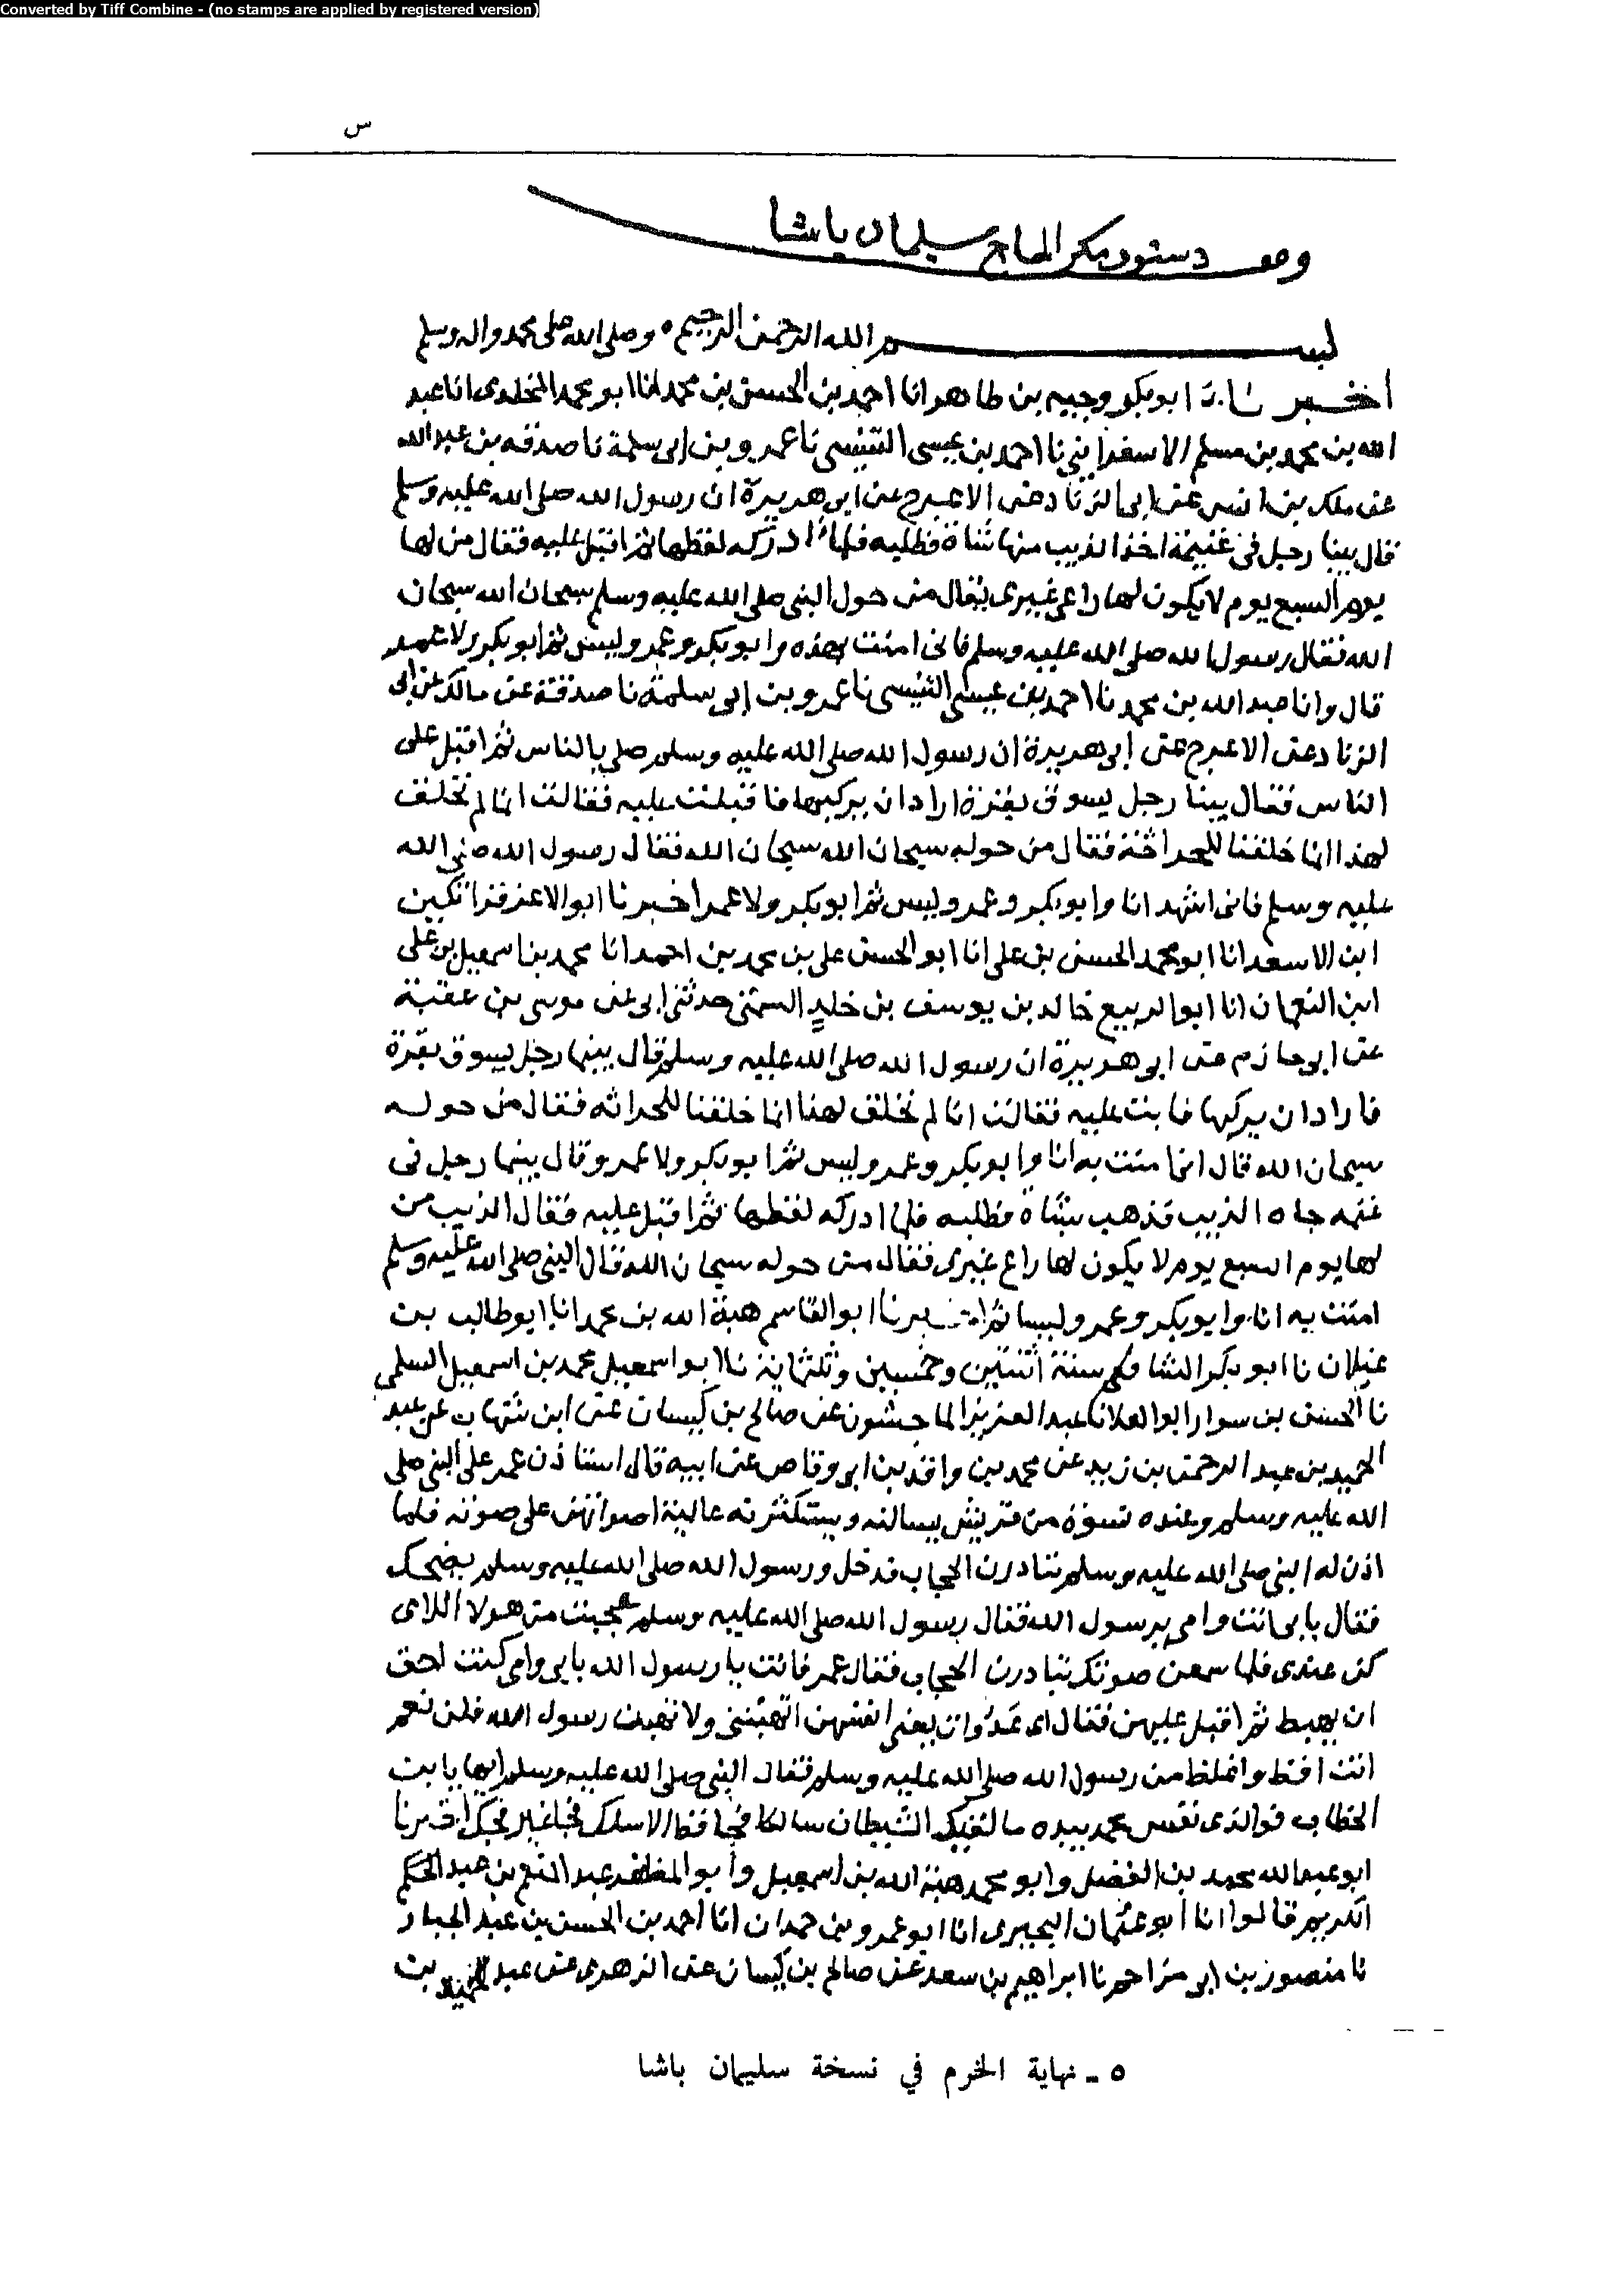 Converted by Tiff Combine - (no stamps are applied by registered version)
س
وقف دستور مكرم الحاج سليمان باشا
بسم الله الرحمن الرحيم وصلى الله على محمد واله وسلم
أخبرنا ابو بكر وجيه بن طاهر انا احمد بن الحسن بن محمد انا ابو محمد المخلدى انا عبد
الله بن محمد بن مسلم الاسفراييني نا احمد بن عيسى التنيسى نا عمرو بن ابى سلمة نا صدقه بن عبد الله
عن ملك بن انس عن ابى الزناد عن الاعرج عن ابى هريرة ان رسول الله صلى الله عليه وسلم
قال بينا رجل في غنيمة اخذ الذيب منها شاة فطلبه فلما ادركه لفظها ثم اقبل عليه فقال من لها
يوم السبع يوم لا يكون لها راعى غيرى فقال من حول النبي صلى الله عليه وسلم سبحان الله سبحان
الله فقال رسول الله صلى الله عليه وسلم فانى امنت بهذه وابو بكر وعمر وليس ثم ابو بكر ولا عمر
قال وانا عبد الله بن محمد نا احمد بن عيسى التنيسى نا عمرو بن ابى سلمة نا صدقة عن مالك عن ابى
الزناد عن الاعرج عن ابى هريرة ان رسول الله صلى الله عليه وسلم صلى بالناس ثم اقبل على
الناس فقال بينا رجل يسوق بقرة اراد ان يركبها فاقبلت عليه فقالت انا لم نخلق
لهذا انا خلقنا للحراثة فقال من حوله سبحان الله سبحان الله فقال رسول الله صلى الله
عليه وسلم فانى اشهد انا وابو بكر وعمر وليس ثم ابو بكر ولا عمر اخبرنا ابو الاعز قراتكين
ابن الاسعد انا ابو محمد الحسن بن على انا ابو الحسن على بن محمد بن احمد انا محمد بن اسمعيل بن على
ابن النعمان انا ابو الربيع خالد بن يوسف بن خليد السمتى حدثنى ابى عن موسى بن عقبة
عن ابى حازم عن ابى هريرة ان رسول الله صلى الله عليه وسلم قال بينما رجل يسوق بقرة
فاراد ان يركبها فابت عليه فقالت انا لم نخلق لهذا انا خلقنا للحراثه فقال من حوله
سبحان الله قال امنت به انا وابو بكر وعمر وليس ثم ابو بكر ولا عمر وقال بينما رجل فى
غنمه جاه الذيب فذهب بشاة فطلبه فلما ادركه لفظها ثم اقبل عليه فقال الذيب من
لها يوم السبع يوم لا يكون لها راع غيرى فقال من حوله سبحان الله قال النبي صلى الله عليه وسلم
امنت به انا وابو بكر وعمر وليسا ثم اخبرنا ابو القاسم هبة الله بن محمد انا ابو طالب بن
غيلان نا ابو بكر الشافعى سنة اثنتين وخمسين وثلثماية نا ابو اسمعيل محمد بن اسمعيل السلمى
نا الحسن بن سوار ابو العلا نا عبد العزيز الماجشون عن صالح بن كيسان عن ابن شهاب عن عبد
الحميد بن عبد الرحمن بن زيد عن محمد بن واقد بن ابى وقاص عن ابيه قال استاذن عمر على النبي صلى
الله عليه وسلم وعنده نسوة من قريش يسالنه ويستكثرنه عالية اصواتهن على صوته فلما
اذن له النبي صلى الله عليه وسلم تبادرن الحجاب فدخل ورسول الله صلى الله عليه وسلم يضحك
فقال بابى انت وامى يرسول الله فقال رسول الله صلى الله عليه وسلم عجبت من هولا اللاى
كن عندى فلما سمعن صوتك تبادرن الحجاب فقال عمر فانت يا رسول الله بابى وامى كنت احق
ان يهبن ثم اقبل عليهن فقال اى عدوات انفسهن اتهبننى ولا تهبن رسول الله قلن نعم
انت افظ واغلظ من رسول الله صلى الله عليه وسلم فقال النبي صلى الله عليه وسلم ايها يا بن
الخطاب فوالذى نفس محمد بيده ما لقيك الشيطان سالكا فجا قط الا سلك فجا غير فجك اخبرنا
ابو عبد الله محمد بن الفضل وابو محمد هبة الله بن اسمعيل وأبو المظفر عبد المنعم بن عبد الكريم
قالوا انا أبو عثمان البحيرى انا ابو عمرو بن حمدان انا احمد بن الحسن بن عبد الجبار
نا منصور بن ابى مزاحم نا ابراهيم بن سعد عن صالح بن كيسان عن الزهرى عن عبد الحميد بن
٥ - نهاية الخرم في نسخة سليمان باشا